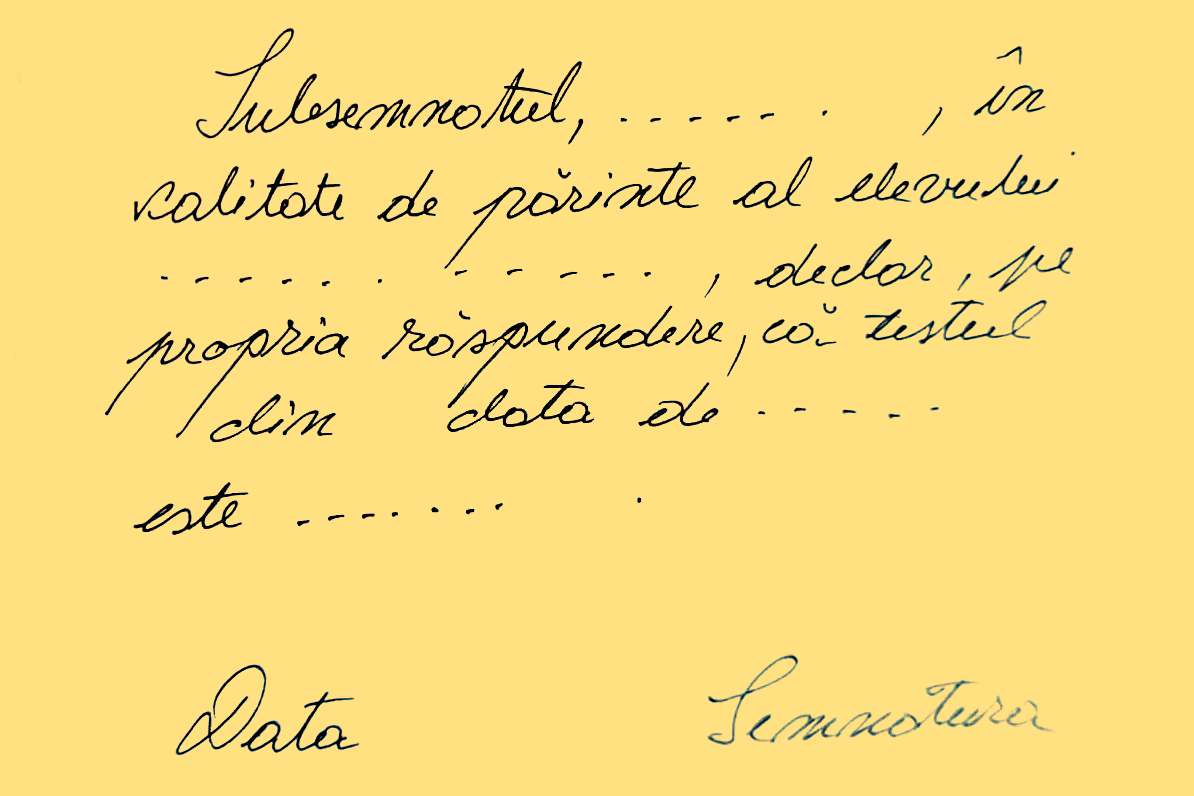 Subsemnatul, . . . . . . . , în
calitate de părinte al elevului
. . . . . . . . . . . . , declar, pe
propria răspundere, că testul
din data de . . . . .
este . . . . . . . .
Data Semnatura